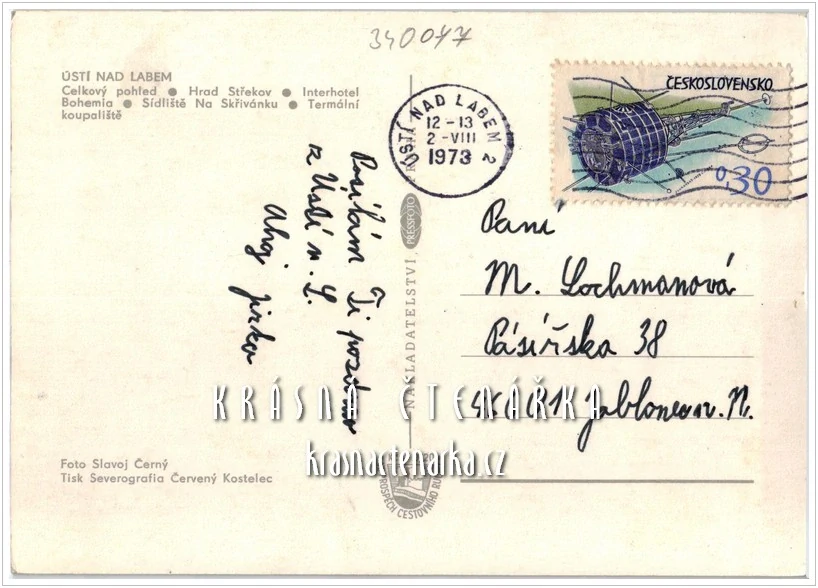 340047
ÚSTÍ NAD LABEM
Celkový pohled ● Hrad Střekov ● Interhotel
Bohemia ● Sídliště Na Skřivánku ● Termální
koupaliště
Posílám Ti pozdrav
z Ústí n. L.
Ahoj Jirka
Foto Slavoj Černý
Tisk Severografia Červený Kostelec
NAKLADATELSTVÍ
PRESSFOTO
ÚSTÍ NAD LABEM 2
12-13
2-VIII
1973
ČESKOSLOVENSKO
0,30
Paní
M. Lochmanová
Pasířská 38
Jablonec n. N.
KRÁSNÁ ČTENÁŘKA
krasnactenarka.cz